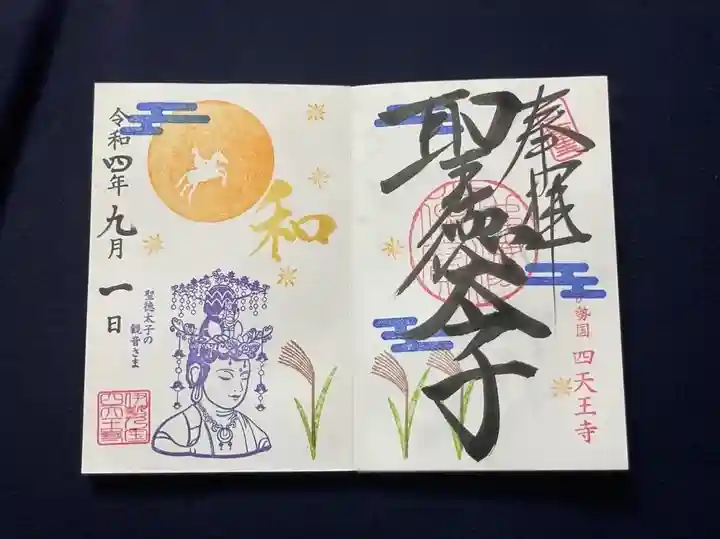 奉拝
聖徳太子
勢国 四天王寺
和
令和四年 九月 一日
聖徳太子の
観音さま